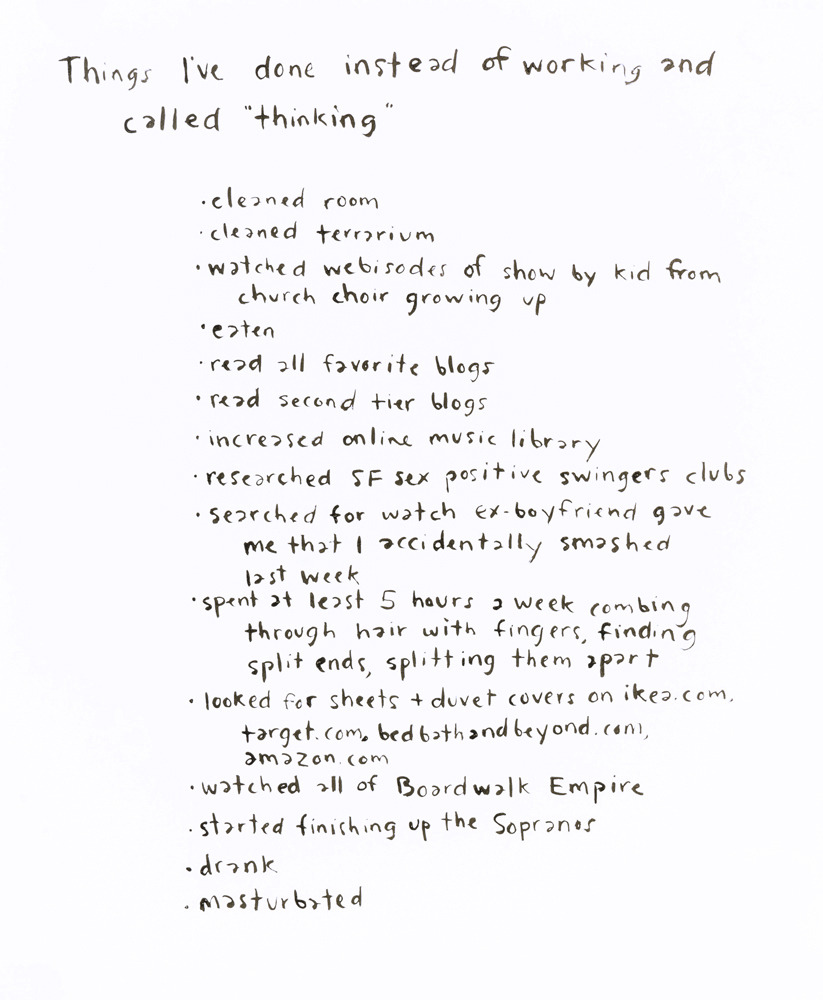 Things I've done instead of working and
called "thinking"
·cleaned room
·cleaned terrarium
·watched webisodes of show by kid from
church choir growing up
·eaten
·read all favorite blogs
·read second tier blogs
·increased online music library
·researched SF sex positive swingers clubs
·searched for watch ex-boyfriend gave
me that I accidentally smashed
last week
·spent at least 5 hours a week combing
through hair with fingers, finding
split ends, splitting them apart
·looked for sheets + duvet covers on ikea.com,
target.com, bedbathandbeyond.com,
amazon.com
·watched all of Boardwalk Empire
·started finishing up the Sopranos
·drank
·masturbated